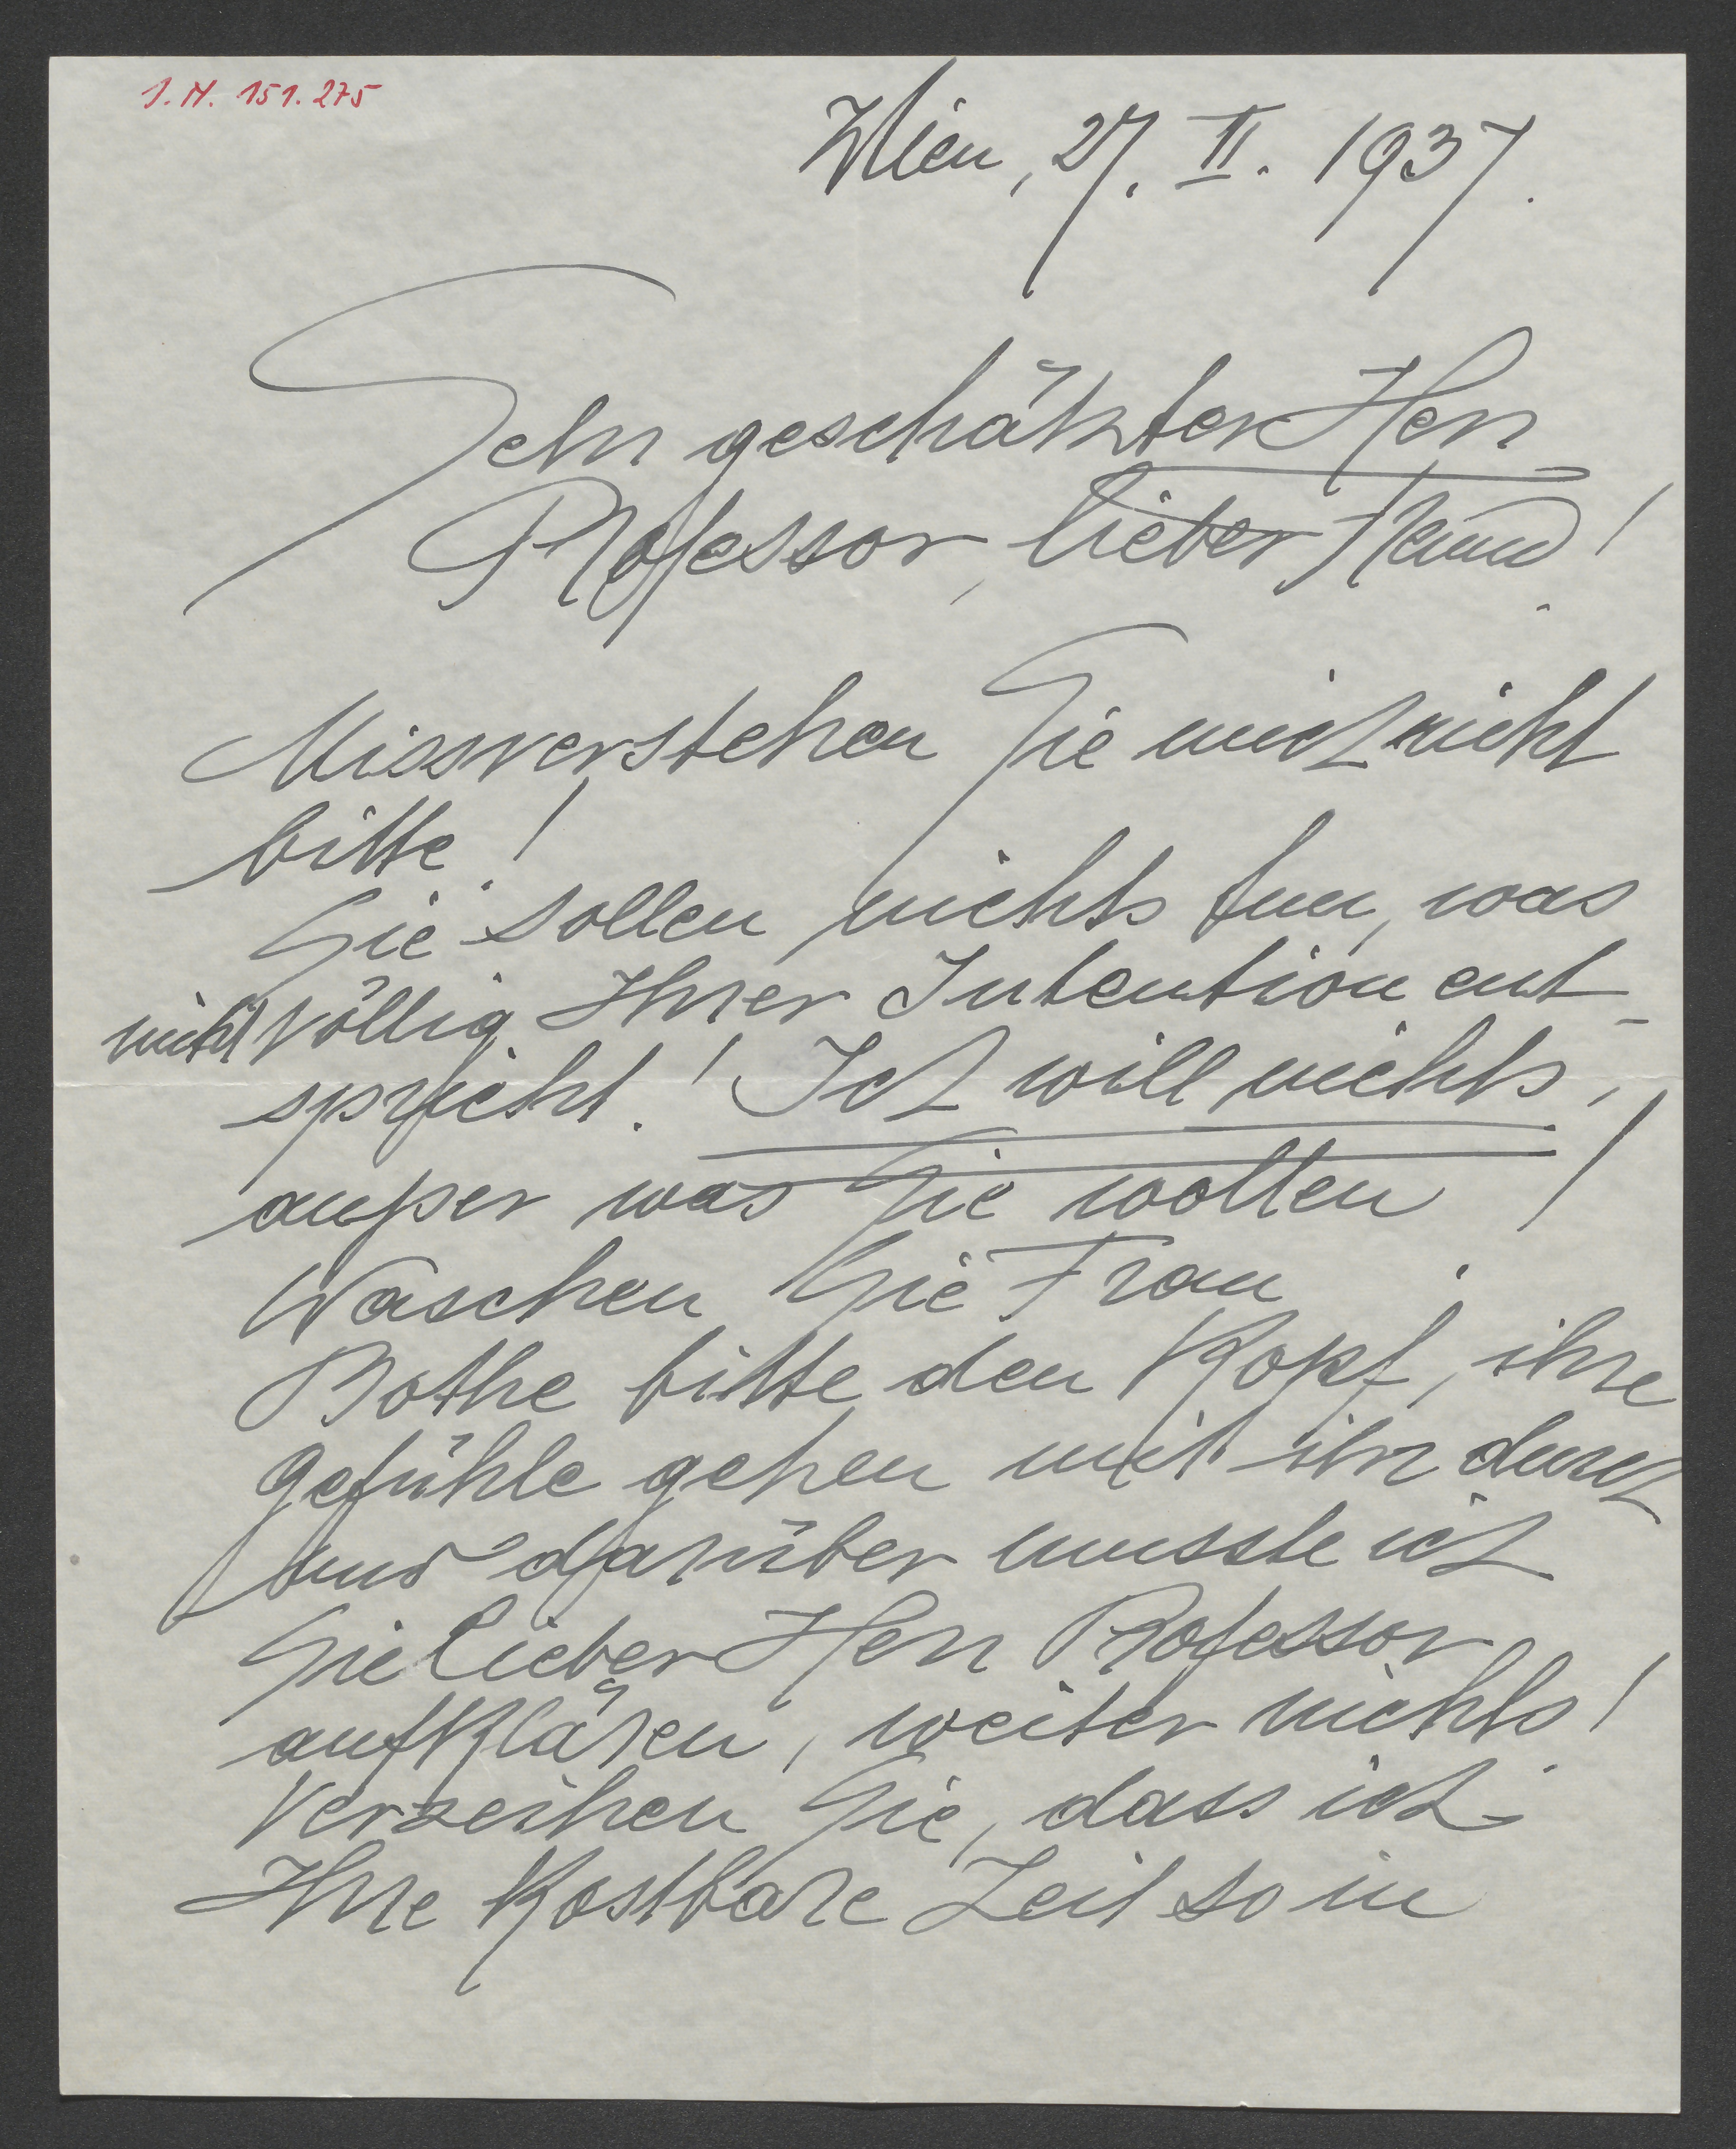 I.N. 151.275
Wien, 27. II. 1937.
Sehr geschätzter Herr
Professor, lieber Freund!
Missverstehen Sie mich nicht
bitte!
Sie sollen nichts tun, was
nicht völlig Ihrer Intention ent-
spricht! Ich will nichts,
außer was Sie wollen!
Waschen Sie Frau
Bothe bitte den Kopf, ihre
Gefühle gehen mit ihr durch
und darüber musste ich
Sie lieber Herr Professor
aufklären, weiter nichts!
Verzeihen Sie, dass ich
Ihre kostbare Zeit so in